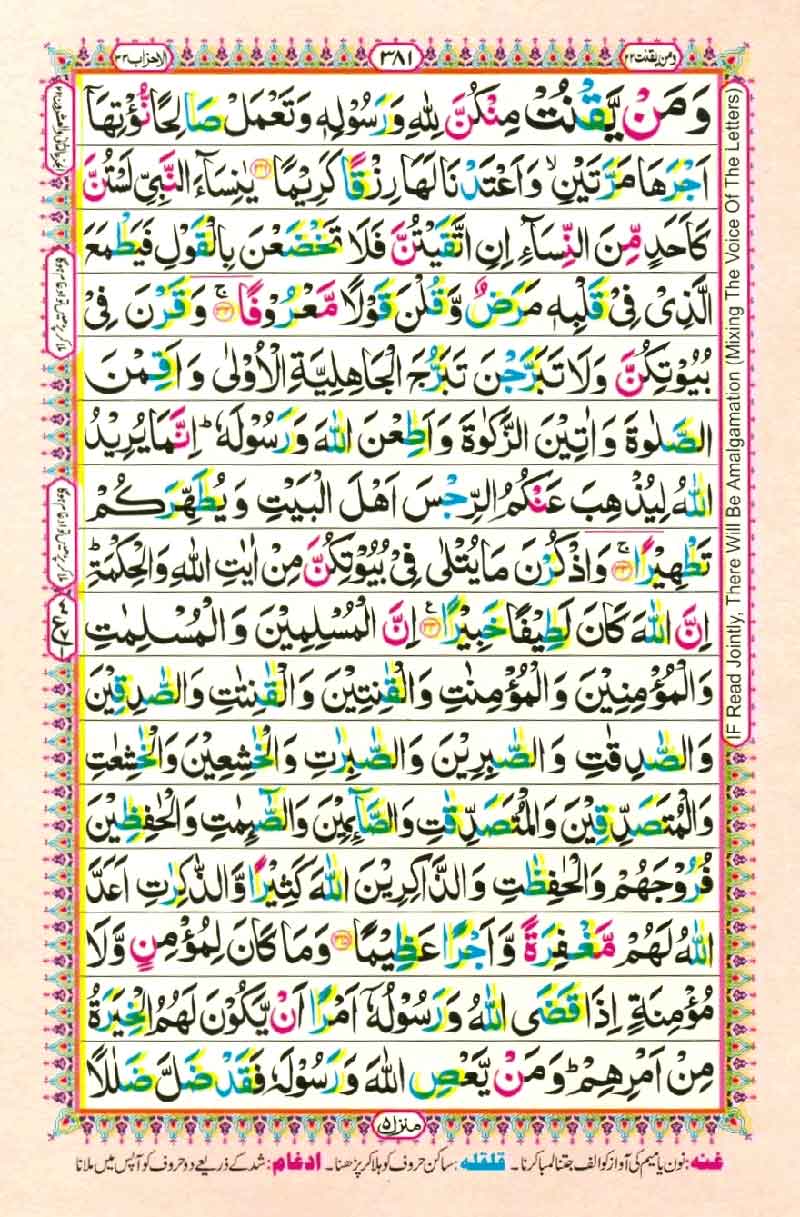 ومن یقنت ۲۲
۳۸۱
الاحزاب ۳۳
وَمَنْ يَّقْنُتْ مِنْكُنَّ لِلّٰهِ وَرَسُوْلِهٖ وَتَعْمَلْ صَالِحًا نُّؤْتِهَاۤ
اَجْرَهَا مَرَّتَيْنِ ۙ وَاَعْتَدْنَا لَهَا رِزْقًا كَرِيْمًا ﴿۳۱﴾ يٰنِسَآءَ النَّبِيِّ لَسْتُنَّ
كَاَحَدٍ مِّنَ النِّسَآءِ اِنِ اتَّقَيْتُنَّ فَلَا تَخْضَعْنَ بِالْقَوْلِ فَيَطْمَعَ
الَّذِيْ فِيْ قَلْبِهٖ مَرَضٌ وَّقُلْنَ قَوْلًا مَّعْرُوْفًا ﴿۳۲﴾ ۚ وَقَرْنَ فِيْ
بُيُوْتِكُنَّ وَلَا تَبَرَّجْنَ تَبَرُّجَ الْجَاهِلِيَّةِ الْاُوْلٰى وَاَقِمْنَ
الصَّلٰوةَ وَاٰتِيْنَ الزَّكٰوةَ وَاَطِعْنَ اللّٰهَ وَرَسُوْلَهٗ ؕ اِنَّمَا يُرِيْدُ
اللّٰهُ لِيُذْهِبَ عَنْكُمُ الرِّجْسَ اَهْلَ الْبَيْتِ وَيُطَهِّرَكُمْ
تَطْهِيْرًا ﴿۳۳﴾ ۚ وَاذْكُرْنَ مَا يُتْلٰى فِيْ بُيُوْتِكُنَّ مِنْ اٰيٰتِ اللّٰهِ وَالْحِكْمَةِ ؕ
اِنَّ اللّٰهَ كَانَ لَطِيْفًا خَبِيْرًا ﴿۳۴﴾ ع اِنَّ الْمُسْلِمِيْنَ وَالْمُسْلِمٰتِ
وَالْمُؤْمِنِيْنَ وَالْمُؤْمِنٰتِ وَالْقٰنِتِيْنَ وَالْقٰنِتٰتِ وَالصّٰدِقِيْنَ
وَالصّٰدِقٰتِ وَالصّٰبِرِيْنَ وَالصّٰبِرٰتِ وَالْخٰشِعِيْنَ وَالْخٰشِعٰتِ
وَالْمُتَصَدِّقِيْنَ وَالْمُتَصَدِّقٰتِ وَالصَّآئِمِيْنَ وَالصّٰٓئِمٰتِ وَالْحٰفِظِيْنَ
فُرُوْجَهُمْ وَالْحٰفِظٰتِ وَالذَّاكِرِيْنَ اللّٰهَ كَثِيْرًا وَّالذّٰكِرٰتِ اَعَدَّ
اللّٰهُ لَهُمْ مَّغْفِرَةً وَّاَجْرًا عَظِيْمًا ﴿۳۵﴾ وَمَا كَانَ لِمُؤْمِنٍ وَّلَا
مُؤْمِنَةٍ اِذَا قَضَى اللّٰهُ وَرَسُوْلُهٗۤ اَمْرًا اَنْ يَّكُوْنَ لَهُمُ الْخِيَرَةُ
مِنْ اَمْرِهِمْ ؕ وَمَنْ يَّعْصِ اللّٰهَ وَرَسُوْلَهٗ فَقَدْ ضَلَّ ضَلٰلًا
IF Read Jointly, There Will Be Amalgamation (Mixing The Voice Of The Letters)
منزل ۵
غنہ: نون یا میم کی آواز کو الف جتنا لمبا کرنا۔ قلقلہ: ساکن حروف کو ہلا کر پڑھنا۔ ادغام: شد کے ذریعے دو حروف کو آپس میں ملانا